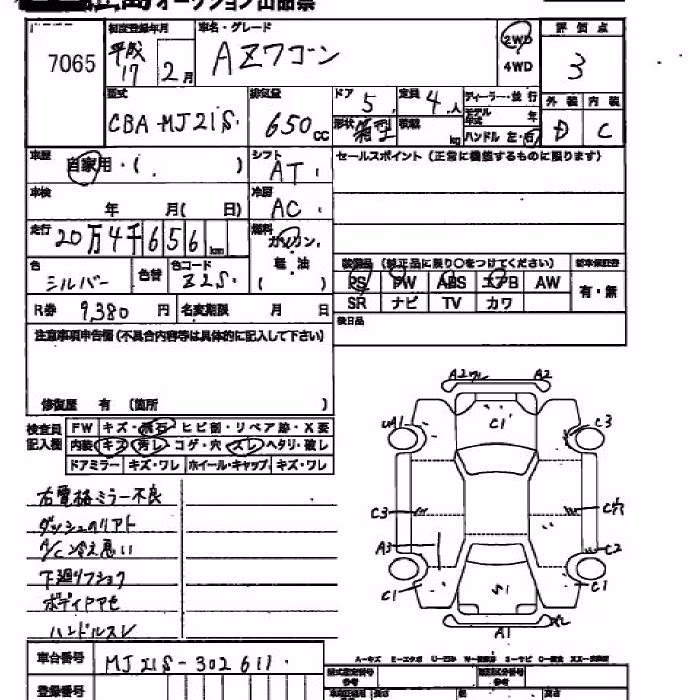 オークション出品票
7065
初度登録年月
平成
17 2月
車名・グレード
AZワゴン
2WD
4WD
評価点
3
型式
CBA-MJ21S
排気量
650cc
ドア 5
定員 4人
ディーラー・並行
形状 箱型
積載 kg
モデル年式 年
ハンドル 左・右
外装 内装
D C
車歴
自家用・( )
シフト
AT
セールスポイント (正常に機能するものに限ります)
車検
年 月( 日)
冷房
AC
走行
20万4千656km
燃料
ガソリン
軽・油
( )
色
シルバー
色替
色コード
Z2S
装備品 (純正品に限り○をつけてください)
新車保証書
PS PW ABS エアB AW
有・無
SR ナビ TV カワ
R券 9,380円
名変期限 月 日
後日品
注意事項申告欄 (不具合内容等は具体的に記入して下さい)
修復歴 有 (箇所 )
検査員記入欄
FW キズ・飛石・ヒビ割・リペア跡・X要
内装 キズ・汚レ・コゲ・穴・スレ・ヘタリ・破レ
ドアミラー キズ・ワレ ホイール・キャップ キズ・ワレ
右電格ミラー不良
ダッシュのリアト
A/C冷え悪い
下廻リフショク
ボディアセ
ハンドルスレ
A2ワレ A2
UA1 C1 C3
C3 C穴
A3 C2
C1 S1 C1
A1
車台番号
MJ21S-302611
登録番号
A-キズ E-エクボ